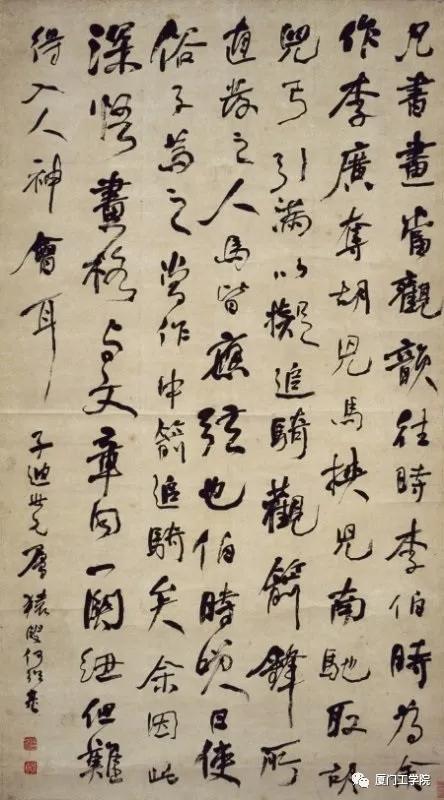 凡書畫當觀韻往時李伯時為余
作李廣奪胡兒馬挾兒南馳取胡
兒弓引滿以擬追騎觀箭鋒所
直發之人馬皆應弦也伯時笑曰使
俗子為之當作中箭追騎矣余因此
深悟畫格與文章同一關紐但難
得入人神會耳
子迪世兄屬猨叟何紹基
厦门工学院